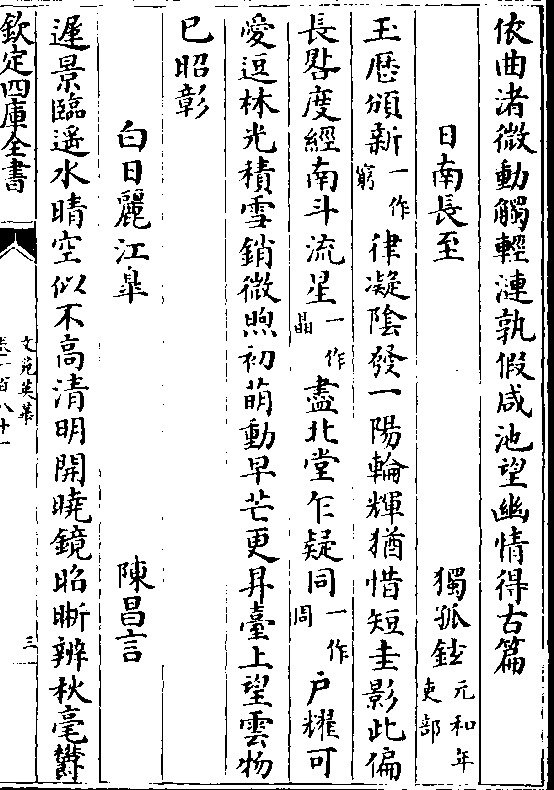 依曲渚微動觸輕漣孰假咸池望幽情得古篇
日南長至 獨孤鉉元和年吏部
玉厯頒新一作窮律凝陰發一陽輪輝猶惜短圭影此偏
長晷度經南斗流星一作晶盡北堂乍疑同一作周户耀可
愛逗林光積雪銷微煦初萌動早芒更昇臺上望雲物
已昭彰
白日麗江臯 陳昌言
遲景臨遥水晴空似不高清明開曉鏡昭晣辨秋毫鬱
欽定四庫全書
文苑英華
卷一百八十一
三